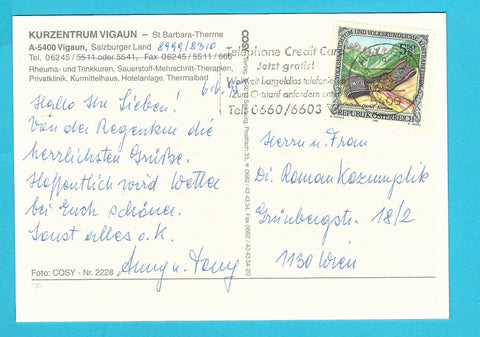 KURZENTRUM VIGAUN – St.Barbara-Therme
A-5400 Vigaun, Salzburger Land 8999/8310
Tel. 06245 / 5511 oder 5541, Fax 06245 / 5511 / 666
Rheuma- und Trinkkuren, Sauerstoff-Mehrschritt-Therapien,
Privatklinik, Kurmittelhaus, Hotelanlage, Thermalbad
Hallo Ihr Lieben!
Von der Regenkur die
herrlichsten Grüße.
Hoffentlich wird Wetter
bei Euch schöner.
Sonst alles o.k.
Anny u. Tony
Foto: COSY - Nr. 2228
Telephone Credit Card
Jetzt gratis!
Weltweit bargeldlos telefonieren
Zum Ortstarif anfordern unter
Tel. 0660/6603
REPUBLIK ÖSTERREICH
Herrn u. Frau
Di. Roman Kozumplik
Grünbergstr. 18/2
1130 Wien